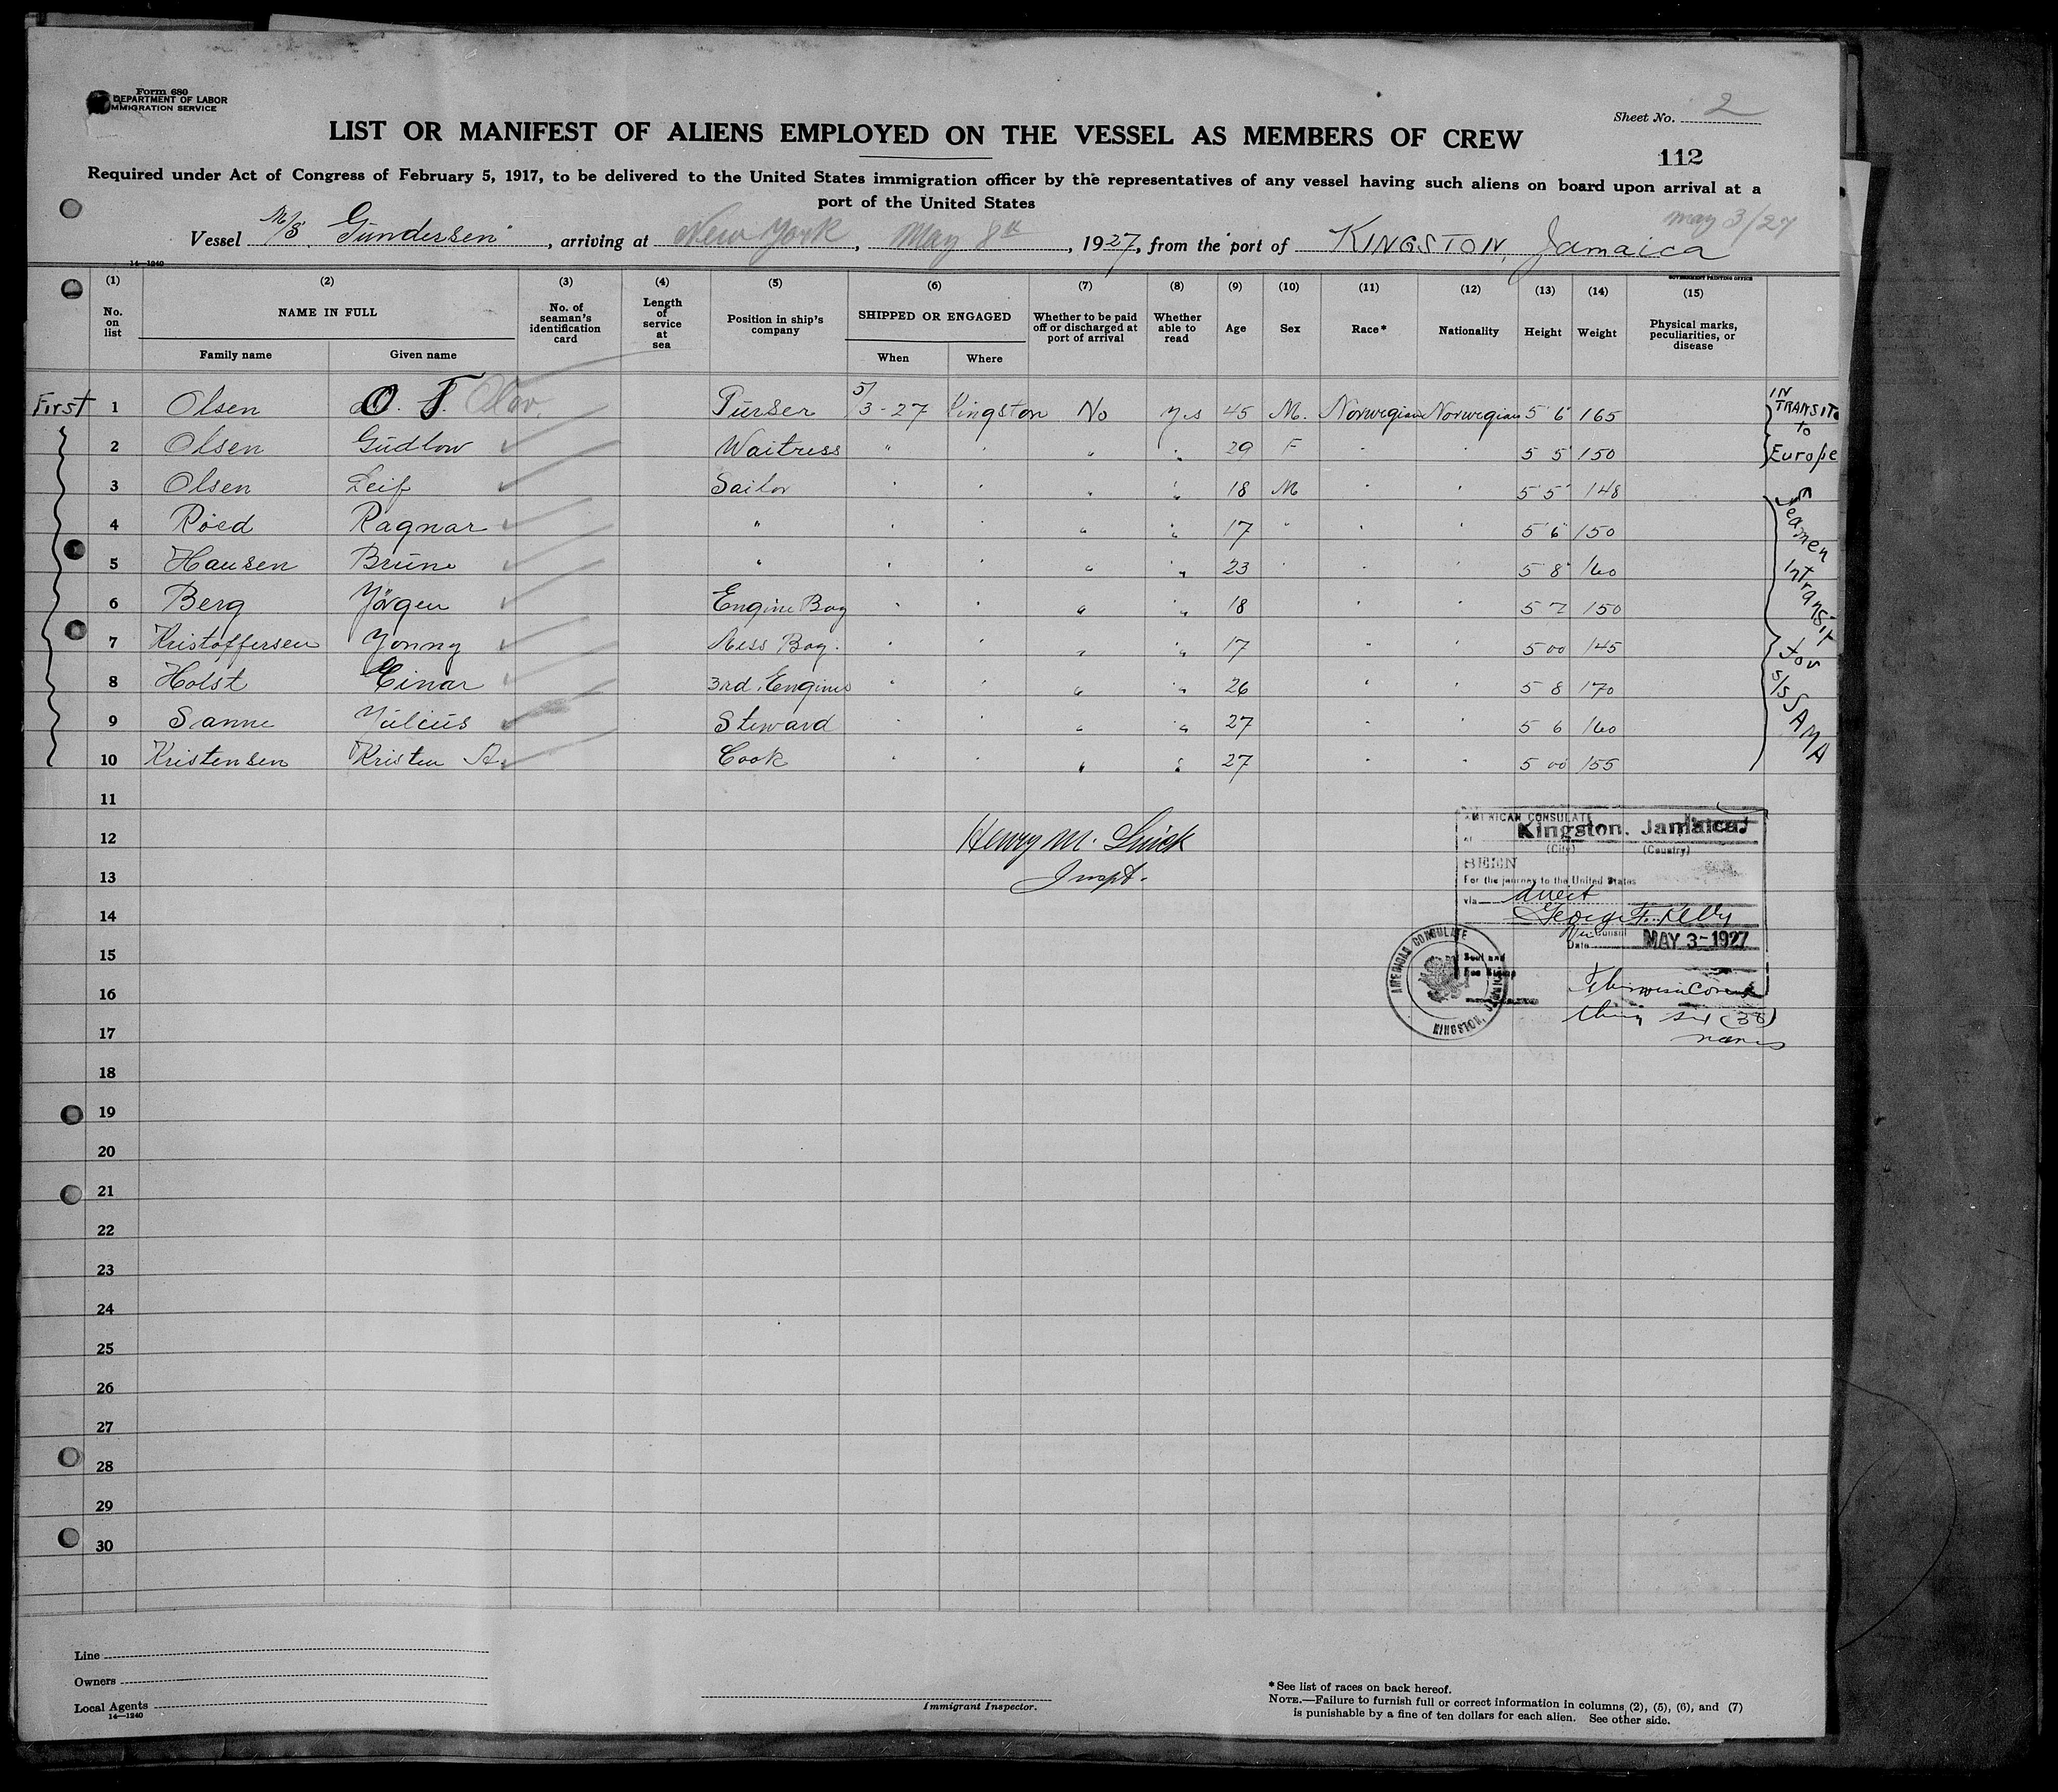 Form 680
DEPARTMENT OF LABOR
IMMIGRATION SERVICE
Sheet No. 2
LIST OR MANIFEST OF ALIENS EMPLOYED ON THE VESSEL AS MEMBERS OF CREW
112
Required under Act of Congress of February 5, 1917, to be delivered to the United States immigration officer by the representatives of any vessel having such aliens on board upon arrival at a
port of the United States
May 3/27
Vessel M/S Gundersen, arriving at New York, May 8th, 1927, from the port of KINGSTON, Jamaica
14—1240
GOVERNMENT PRINTING OFFICE
(1) (2) (3) (4) (5) (6) (7) (8) (9) (10) (11) (12) (13) (14) (15)
No. on list
NAME IN FULL
Family name
Given name
No. of seaman's identification card
Length of service at sea
Position in ship's company
SHIPPED OR ENGAGED
When
Where
Whether to be paid off or discharged at port of arrival
Whether able to read
Age
Sex
Race*
Nationality
Height
Weight
Physical marks, peculiarities, or disease
First 1 Olsen O. T. Olov. Purser 5/3-27 Kingston No Yes 45 M. Norwegian Norwegian 5 6 165
2 Olsen Gudlow Waitress " " " " 29 F " " 5 5 150
3 Olsen Leif Sailor " " " " 18 M " " 5 5 148
4 Röed Ragnar " " " " " 17 " " " 5 6 150
5 Hansen Brune " " " " " 23 " " " 5 8 160
6 Berg Yörgen Engine Boy " " " " 18 " " 5 7 150
7 Kristoffersen Yonny Mess Boy. " " " " 17 " " 5 00 145
8 Holst Einar 3rd. Engine " " " " 26 " " 5 8 170
9 Sanne Yulius Steward " " " " 27 " " 5 6 160
10 Kristensen Kristen A. Cook " " " " 27 " " 5 00 155
IN TRANSIT
to
Europe
Seamen
Intransit
for
S/S SAMA
11
12
13
14
15
16
17
18
19
20
21
22
23
24
25
26
27
28
29
30
Henry M.
Inspt.
AMERICAN CONSULATE
at Kingston. Jamaica.
(City) (Country)
SEEN
For the journey to the United States
via direct
George F. Kelly
Vice Consul
Date MAY 3-1927
Seal and
Fee Stamp
AMERICAN CONSULATE
KINGSTON, JAMAICA
names
Line
Owners
Local Agents
14—1240
Immigrant Inspector.
*See list of races on back hereof.
NOTE.—Failure to furnish full or correct information in columns (2), (5), (6), and (7)
is punishable by a fine of ten dollars for each alien. See other side.